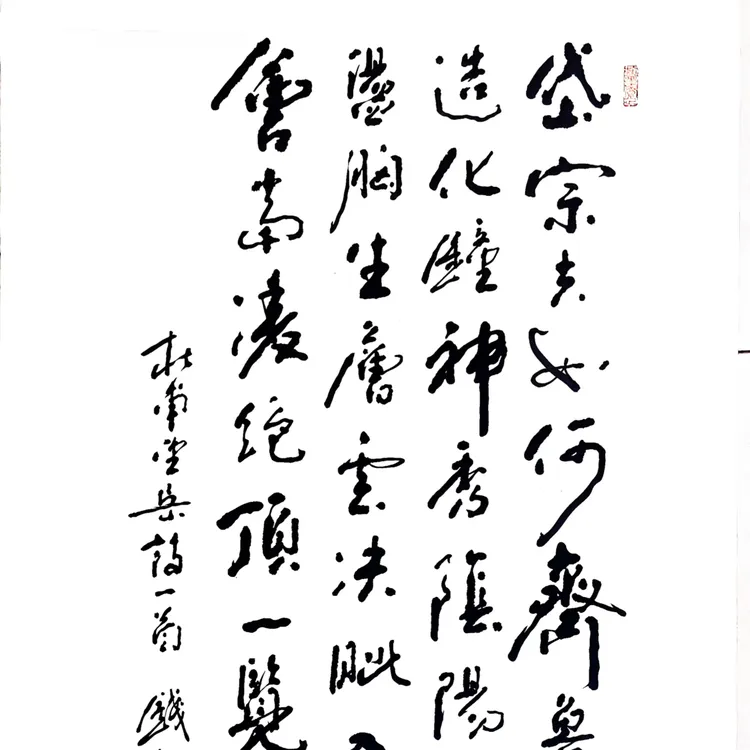 岱宗夫如何齊魯
造化鍾神秀陰陽
盪胸生層雲決眦
會當凌絕頂一覽
杜甫望岳詩一首